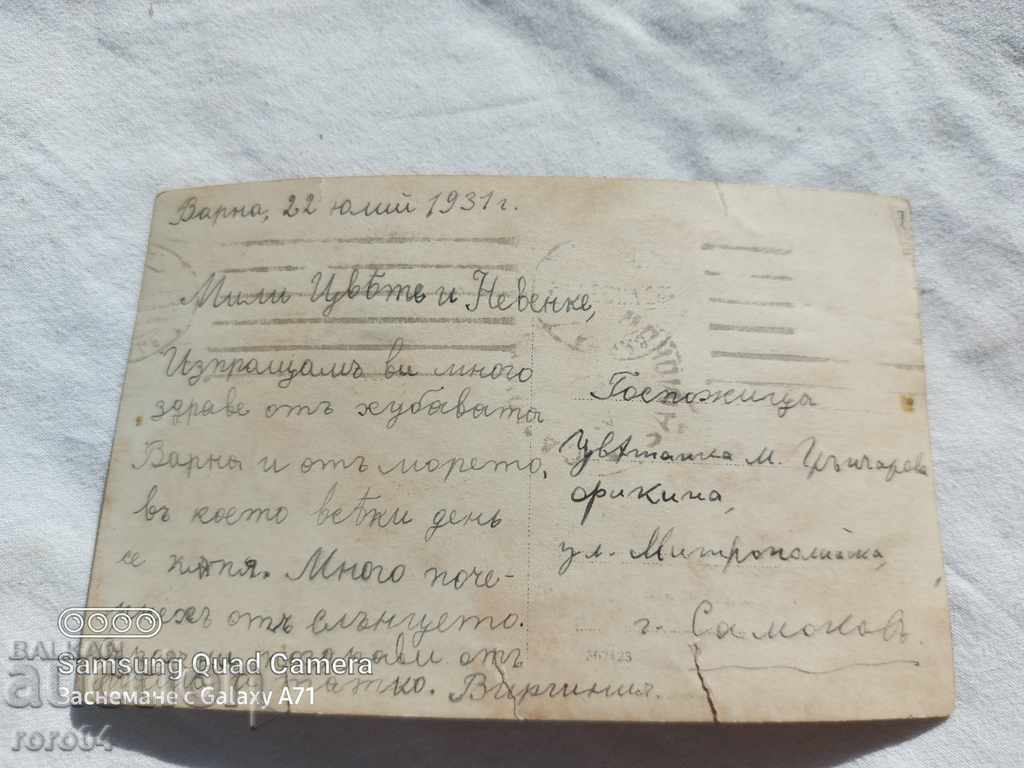 Варна, 22 юлий 1931 г.
Мили Цвѣте и Невенке,
Изпращамъ ви много
здраве отъ хубавата
Варна и отъ морето,
въ което всѣки день
се кѫпя. Много поче-
хъ отъ слънцето.
поздрави отъ
татко. Виргиния.
Госпожица
Цвѣтанка М. Грънчарова
ул. Митрополитска,
г. Самоковъ
BALKAN
auction
roro04
Samsung Quad Camera
Заснемане с Galaxy A71